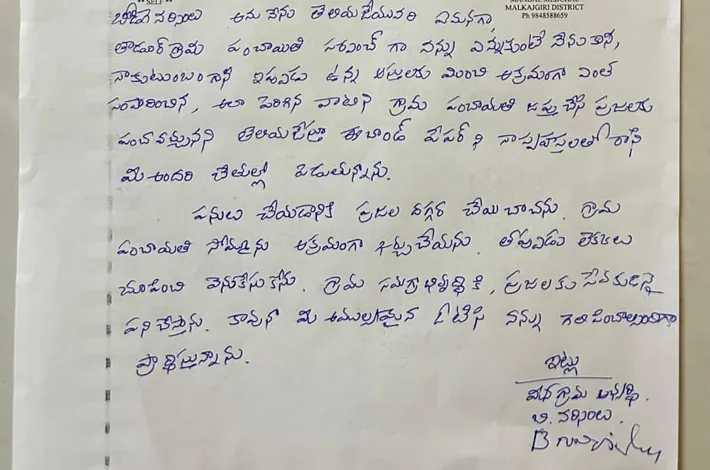 " SELF "
MALKAJGIRI DISTRICT
Ph 9848588659
బోడ నర్సింలు అను నేను తెలియజేయునది ఏమనగా
తాడూర్ గ్రామ పంచాయితి సర్పంచ్ గా నన్ను ఎన్నుకుంటే నేను కానీ,
నా కుటుంబం గాని ఇప్పుడు ఉన్న ఆస్తులకు మించి అక్రమంగా ఎంత
సంపాదించిన, అలా పెరిగిన వాటిని గ్రామ పంచాయతి జప్తు చేసి ప్రజలకు
పంచవచ్చునని తెలియజేస్తూ ఈ బాండ్ పేపర్ ని నా స్వహస్తాలతో రాసి
మీ అందరి చేతుల్లో పెడుతున్నాను.
పనులు చేయడానికి ప్రజల దగ్గర చేయి చాచను. గ్రామ
పంచాయతి సొమ్మును అక్రమంగా ఖర్చు చేయను. తప్పుడు లెక్కలు
చూపించి వెనుకేసుకోను. గ్రామ సమగ్రాభివృద్ధికి, ప్రజలకు సేవకుడినై
పని చేస్తాను. కావున మీ అమూల్యమైన ఓటేసి నన్ను గెలిపించాల్సిందిగా
ప్రార్థిస్తున్నాను.
ఇట్లు
మీ గ్రామ అభ్యర్థి.
బి. నర్సింలు.